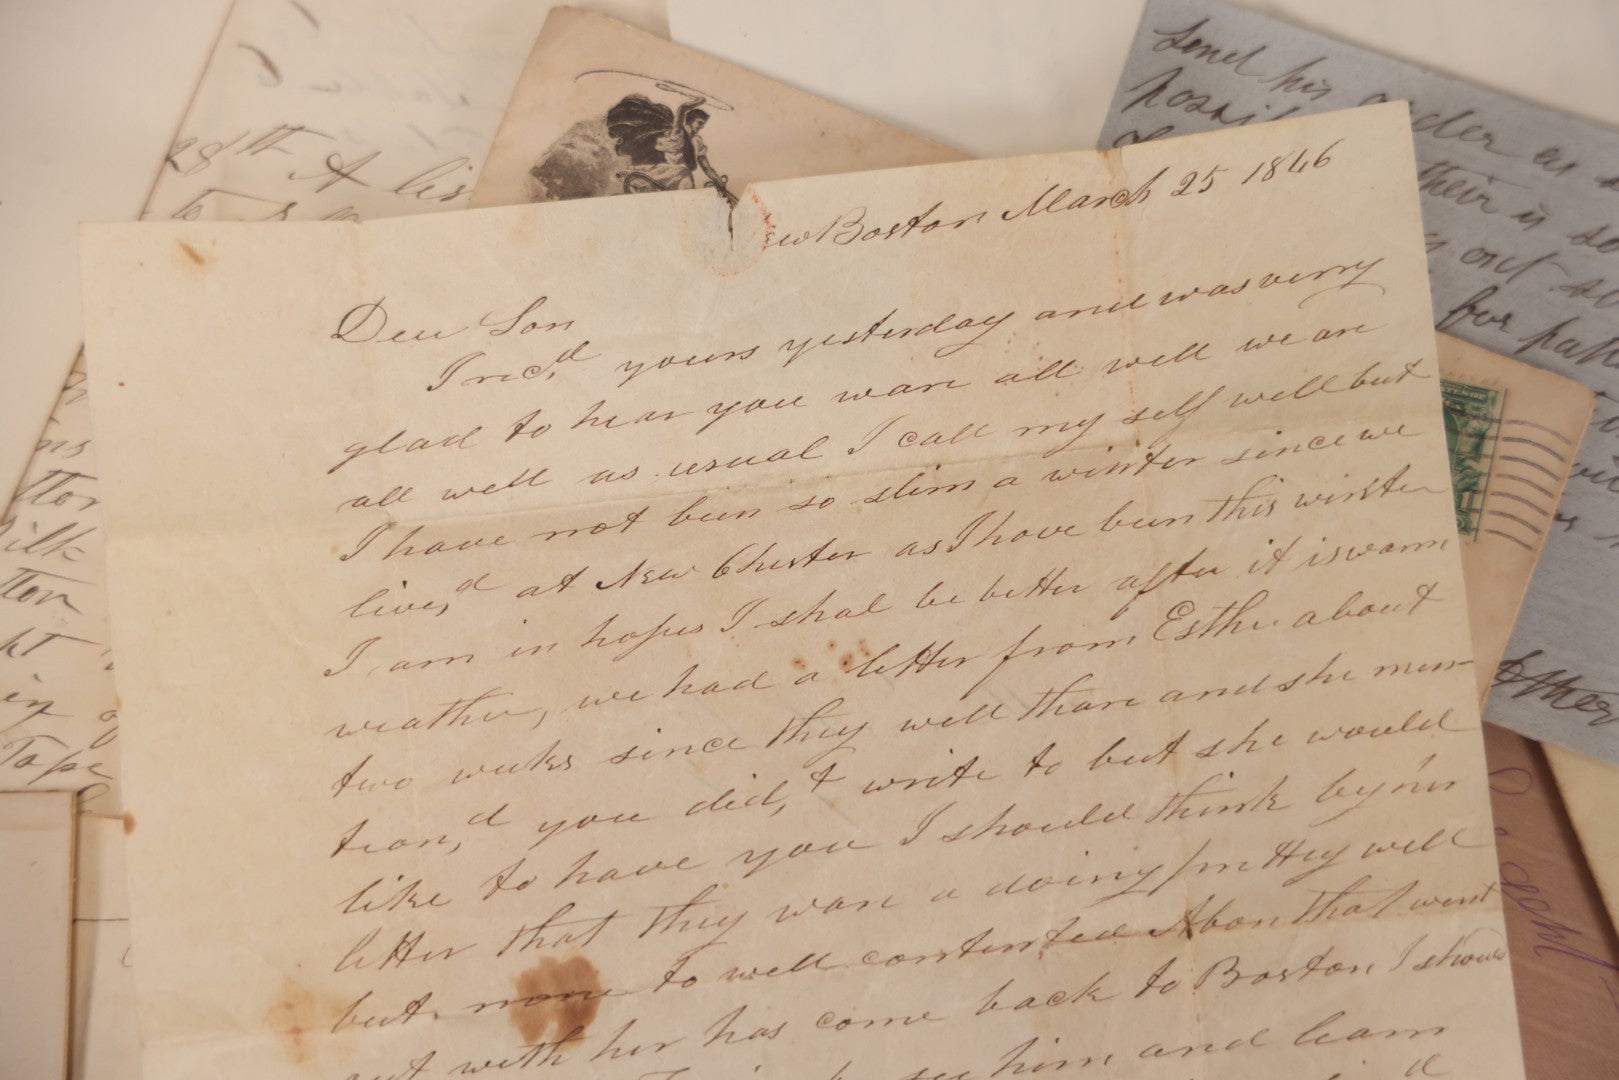 ew Boston March 25 1846
Dear Son
I recd, yours yesterday and was verry
glad to hear you ware all well we are
all well as usual I call my self well but
I have not been so slim a winter since we
live,d at New Chester as I have been this winter
I am in hopes I shal be better after it is warm
weather, we had a letter from Esther about
two weeks since they well thare and she men
tion,d you did,t write to but she would
like to have you I should think by her
letter that they ware a doing prittey well
but none to well contented that went
out with her has come back to Boston I should
see him and learn
28th A lis
send his order as s
hospi
their is so
out so
for pati
other